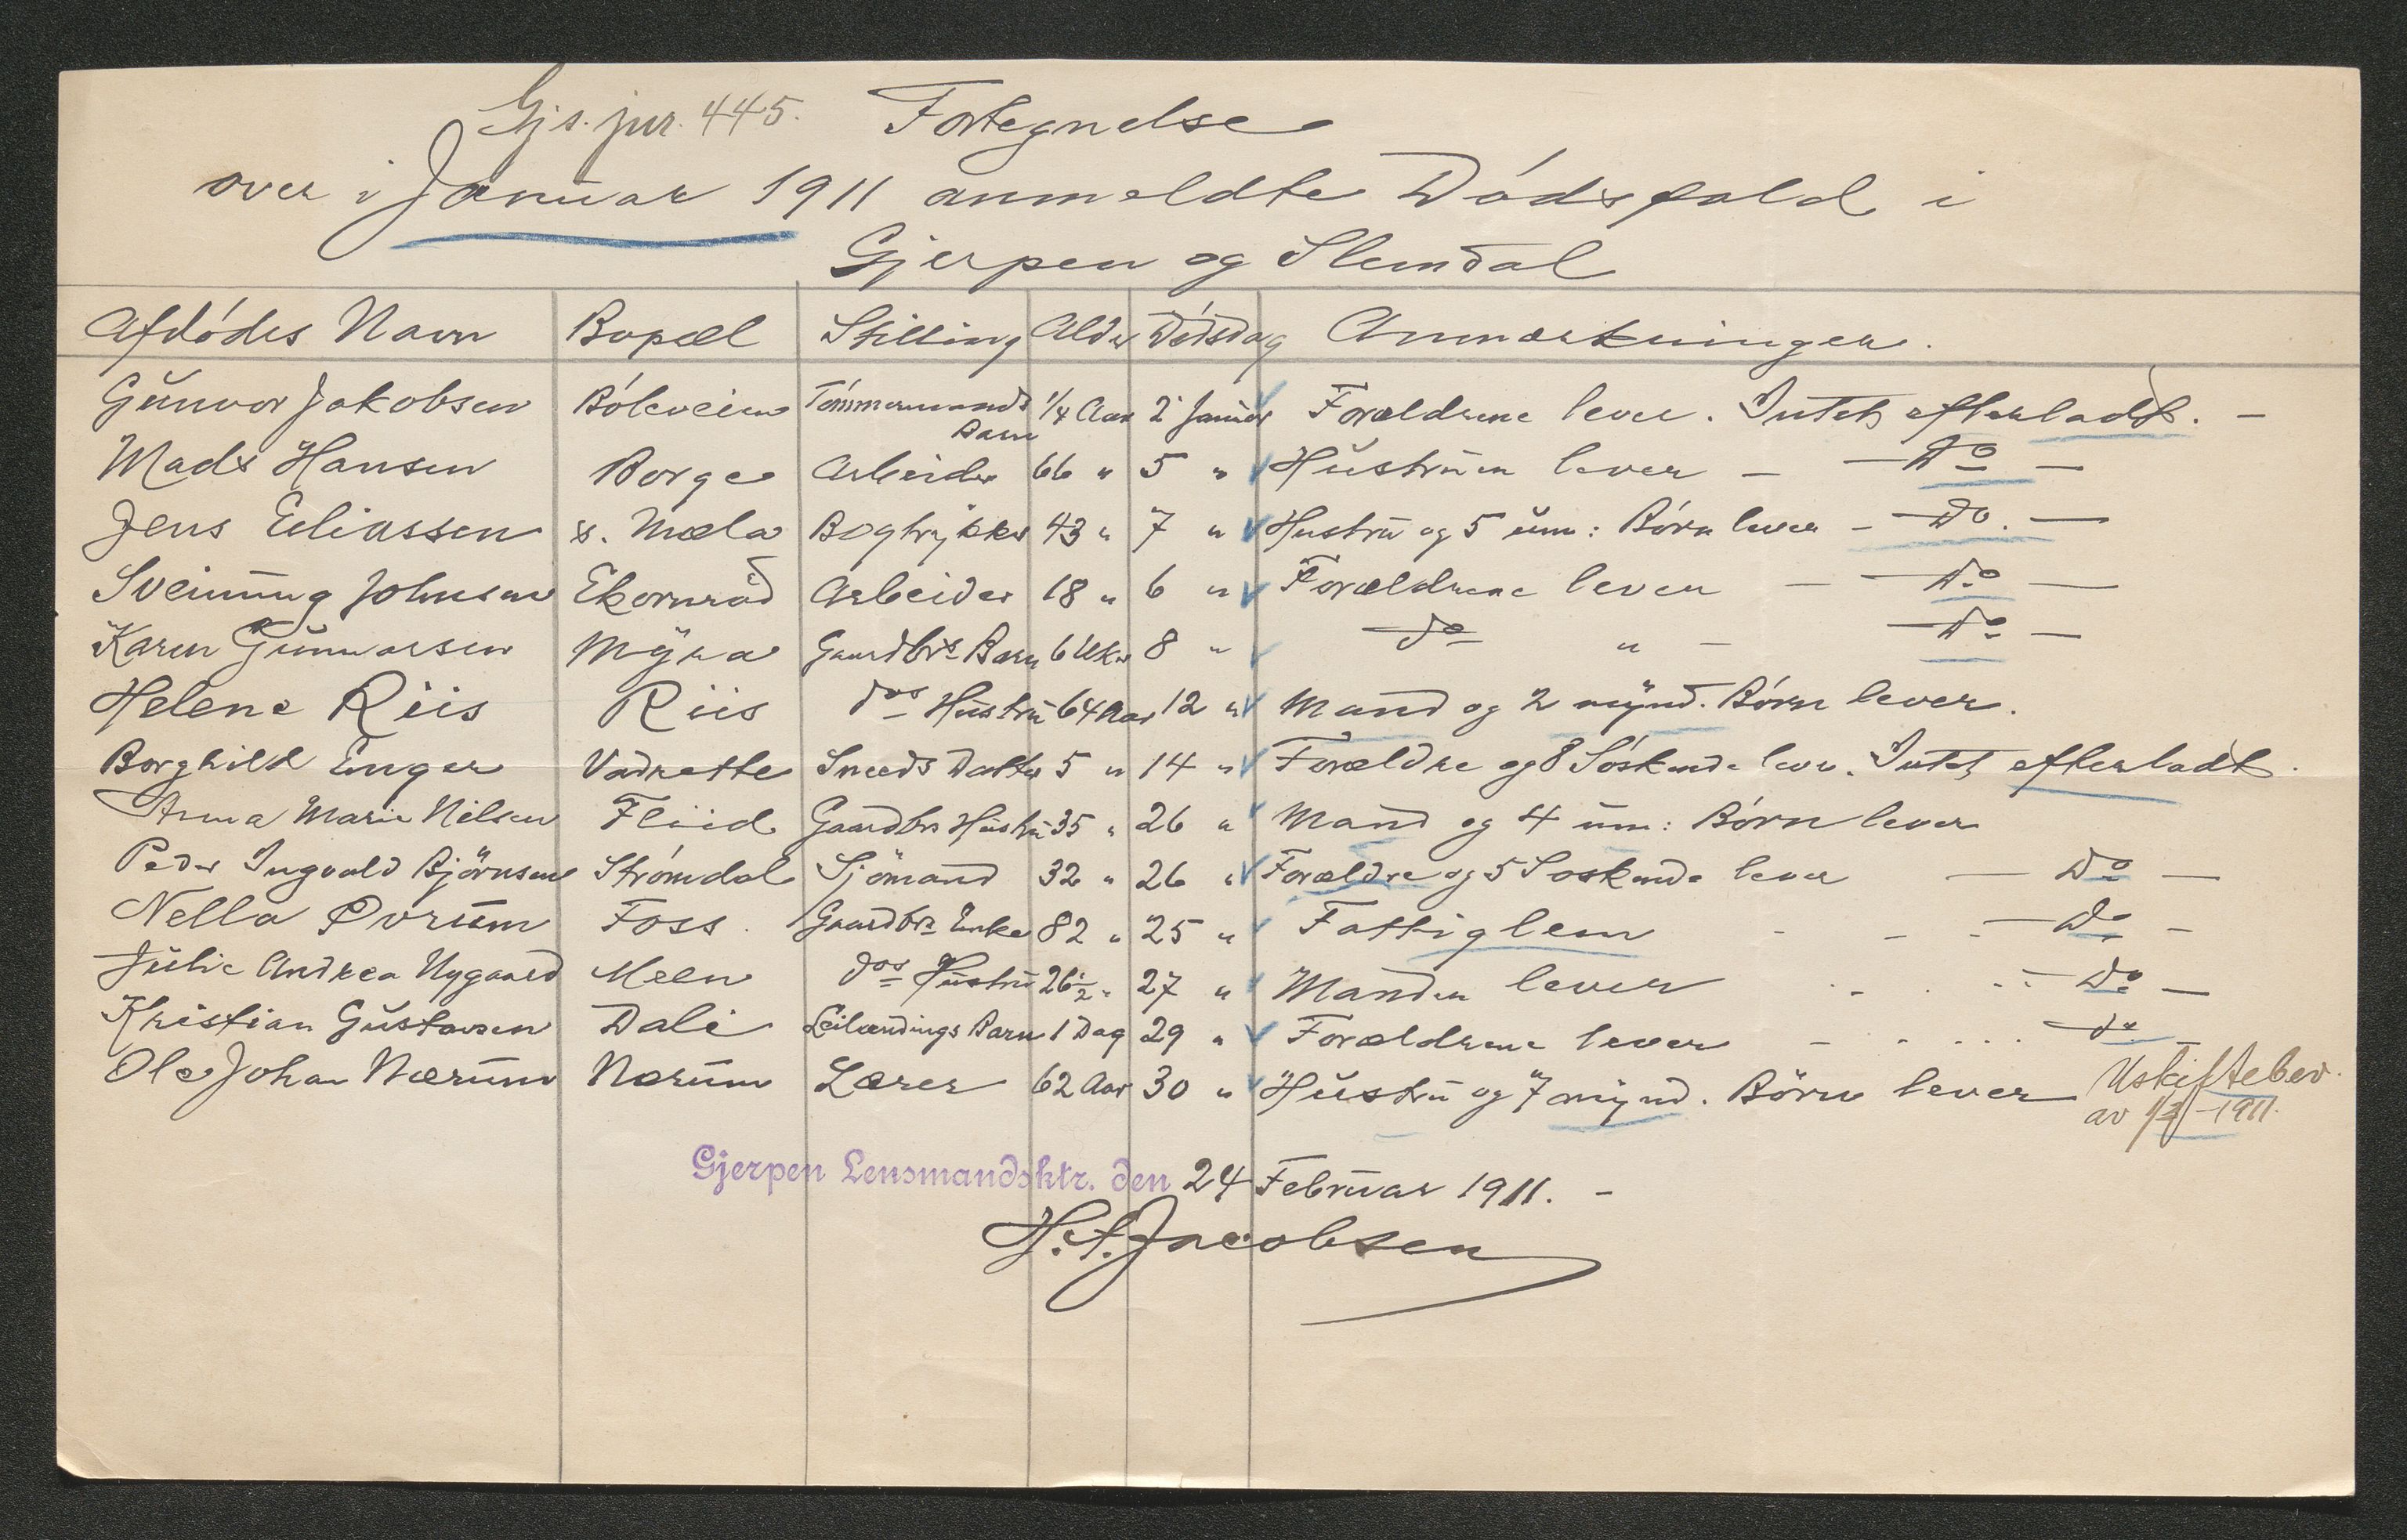 Gjs. jur. 445. Fortegnelse
over i Januar 1911 anmeldte Dødsfald i
Gjerpen og Slemdal
Afdødes Navn Bopæl Stilling Alder Dødsdag Anmærkninger.
Gunvor Jakobsen Böleveien Tømmermands Barn 1/4 Aar 2 Januar Forældrene lever. Intet efterladt. —
Mads Hansen Borge Arbeider 66 " 5 " Hustruen lever — — Do —
Jens Eeliassen s. Mæla Bogtrykker 43 " 7 " Hustru og 5 um: Børn lever — — Do. —
Sveinung Johnsen Ekornrød Arbeider 18 " 6 " Forældrene lever — — Do —
Karen Gunnarsen Myra Gaardbrs Barn 6 Uker 8 " do " — — Do —
Helene Riis Riis dos Hustru 64 Aar 12 " Mand og 2 mynd. Børn lever.
Borghild Enger Vadrette Smeds Datter 5 " 14 " Forældre og 8 Søskende lever. Intet efterladt.
Anna Marie Nilsen Fliid Gaardbrs Hustru 35 " 26 " Mand og 4 um: Børn lever
Peder Ingvald Bjørnsen Strømdal Sjømand 32 " 26 " Forældre og 5 Søskende lever — Do —
Nella Ovrum Foss. Gaardbrs Enke 82 " 25 " Fattiglem - - - — Do. —
Julie Andrea Nygaard Meen dos Hustru 26 1/2 " 27 " Manden lever — Do —
Kristian Gustavsen Dali Leilændings Barn 1 Dag 29 " Forældrene lever - - . . . — do. —
Ole Johan Nærum Nærum Lærer 62 Aar 30 " Hustru og 7 mynd. Børn lever Uskiftebev.
av 1/2 - 1911.
Gjerpen Lensmandsktr. den 24 Februar 1911. —
H. A. Jacobsen